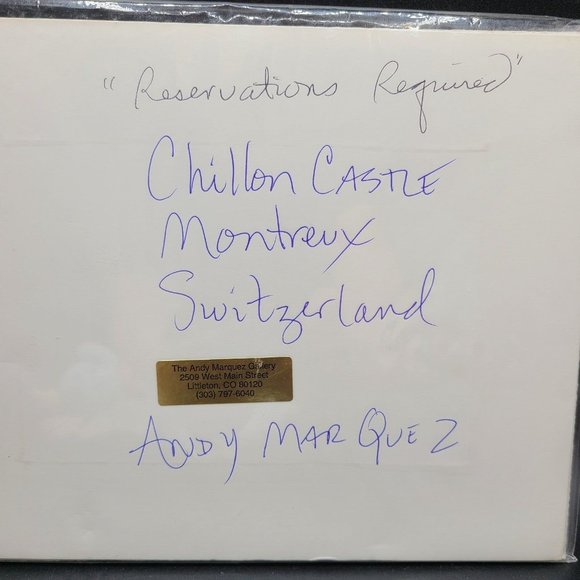 "Reservations Required"
Chillon CASTLE
Montreux
Switzerland
The Andy Marquez Gallery
2509 West Main Street
Littleton, CO 80120
(303) 797-6040
ANDY MARQUEZ